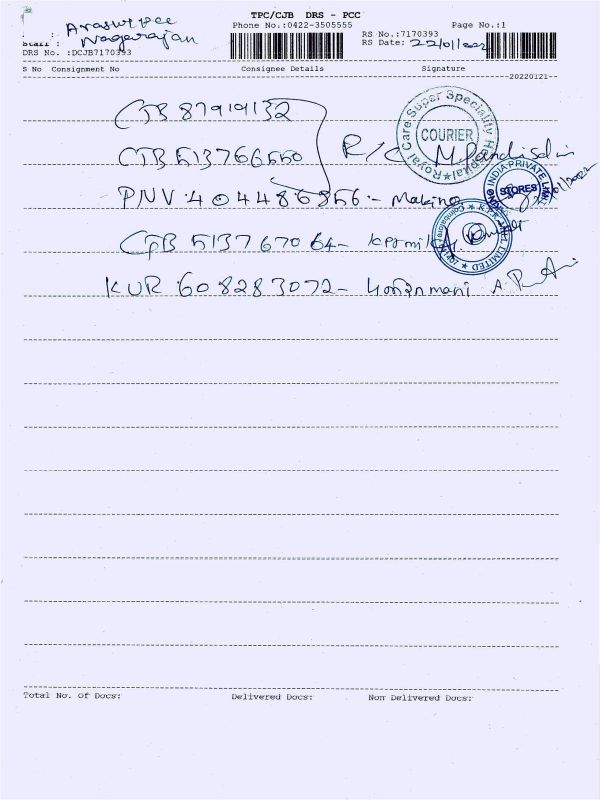 TPC/CJB DRS - PCC
Phone No.:0422-3505555
Page No.:1
RS No.:7170393
RS Date: 22/01/2022
Nagarajan
Staff :
DRS No. :DCJB7170393
S No Consignment No Consignee Details Signature
20220121
CJB 87919132
CJB 513766550 R/C
PNV 404486856 - Makino
CJB 513767064-
KUR 608283072-
Royal Care Super Speciality Hospital
COURIER
INDIA PRIVATE
STORES
LIMITED
Total No. Of Docs: Delivered Docs: Non Delivered Docs: